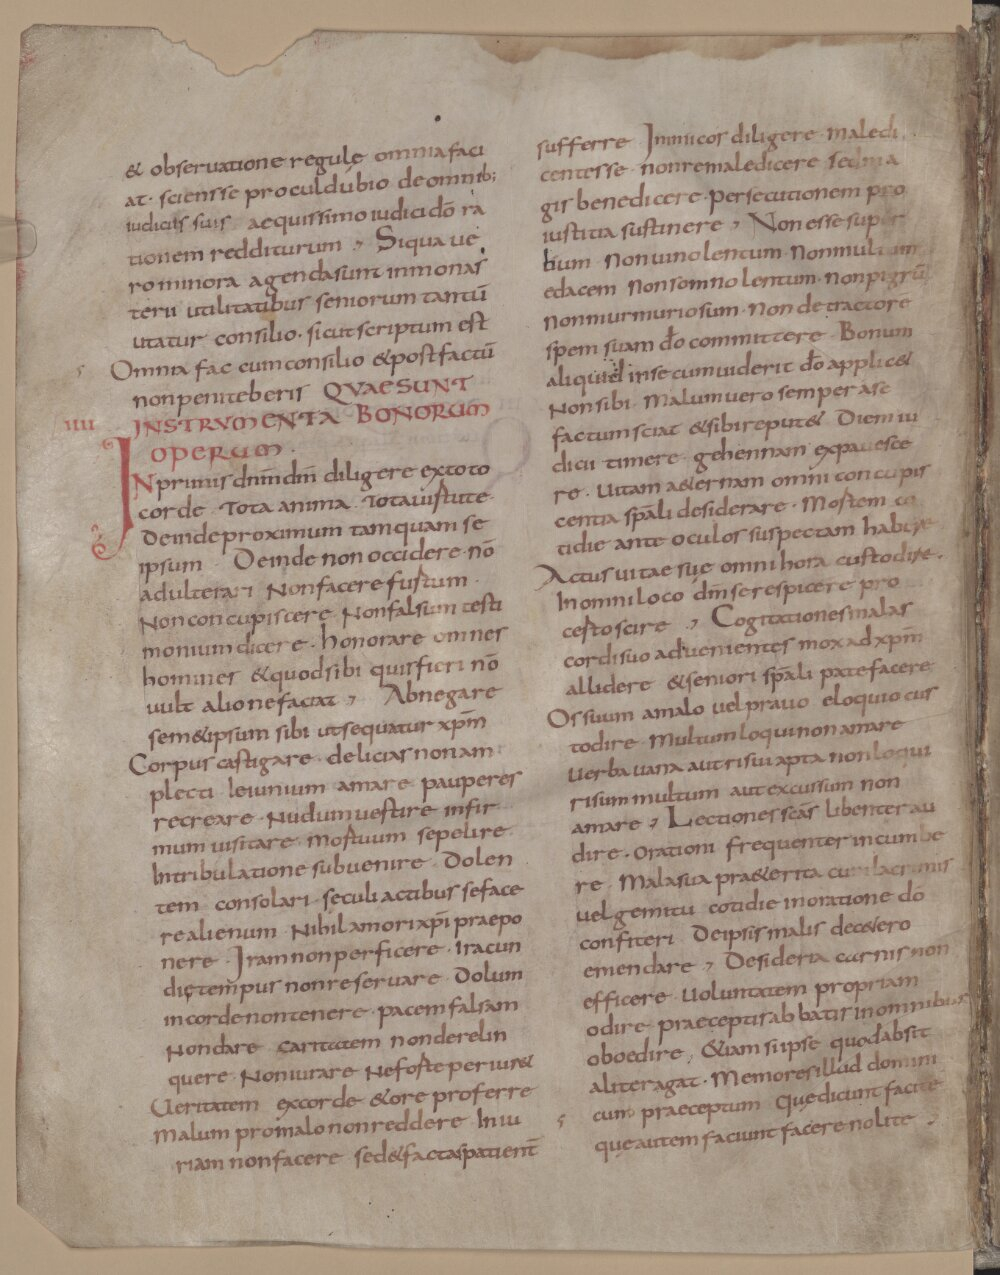 & observatione regulę omnia faci
at · sciens se procul dubio de omnib;
iudiciis suis aequissimo iudici dō ra
tionem redditurum , Siqua ve
ro minora agenda sunt in monas
terii utilitatibus seniorum tantū
utatur consilio · sicut scriptum est
Omnia fac cum consilio & post factū
non peniteberis QVAE SUNT
IIII INSTRVMENTA BONORUM
OPERUM ·
IN primis dnm dm diligere ex toto
corde · Tota anima · Tota virtute ·
Deinde proximum tamquam se
ipsum Deinde non occidere nō
adulterari Non facere furtum ·
Non concupiscere Non falsum testi
monium dicere · honorare omnes
homines & quod sibi quis fieri nō
vult alio ne faciat , Abnegare
sem&ipsum sibi ut sequatur xpm̄
Corpus castigare · delicias non am
plecti Ieiunium amare pauperes
recreare · Nudum vestire infir
mum visitare · Mortuum sepelire ·
In tribulatione subvenire · Dolen
tem consolari · seculi actibus se face
re alienum · Nihil amori xp̄i praepo
nere · Iram non perficere · Iracun
dię tempus non reservare · Dolum
in corde non tenere · pacem falsam
Non dare caritatem non derelin
quere · Non iurare Ne forte periur&
Veritatem ex corde & ore proferre
Malum pro malo non reddere Iniu
riam non facere sed & factas patient̄
sufferre Inimicos diligere · maledi
centes se · non remaledicere sed ma
gis benedicere · persecutionem pro
iustitia sustinere , Non esse super
bium Non vinolentum · Non multum
edacem Non somnolentum · non pigrū
Non murmuriosum · Non detractore
spem suam dō committere · Bonum
aliquid in se cum viderit dō applic&
Non sibi · Malum vero semper a se
factum sciat & sibi reput& · Diem iu
dicii timere · gehennam expavesce
re · Vitam a&ernam omni concupis
centia sp̄ali desiderare · Mortem co
tidie ante oculos suspectam habere
Actus vitae suę omni hora custodire ·
In omni loco dm̄ se respicere pro
certo scire , Cogitationes malas
cordi suo advenientes mox ad xpm̄
allidere & seniori sp̄ali patefacere
Os suum a malo vel pravo eloquio cus
todire · Multum loqui non amare
Verba vana aut risui apta non loqui
risum multum aut excussum non
amare , Lectiones scās libenter au
dire · Orationi frequenter incumbe
re · Mala sua pra&erita cum lacrimis
vel gemitu cotidie in oratione dō
confiteri De ipsis malis de c&ero
emendare , Desideria carnis non
efficere Voluntatem propriam
odire praeceptis abbatis in omnibus
oboedire , &iam si ipse quod absit
aliter agat · Memores illud domini
cum praeceptum Que dicunt facite
quę autem faciunt facere nolite ,